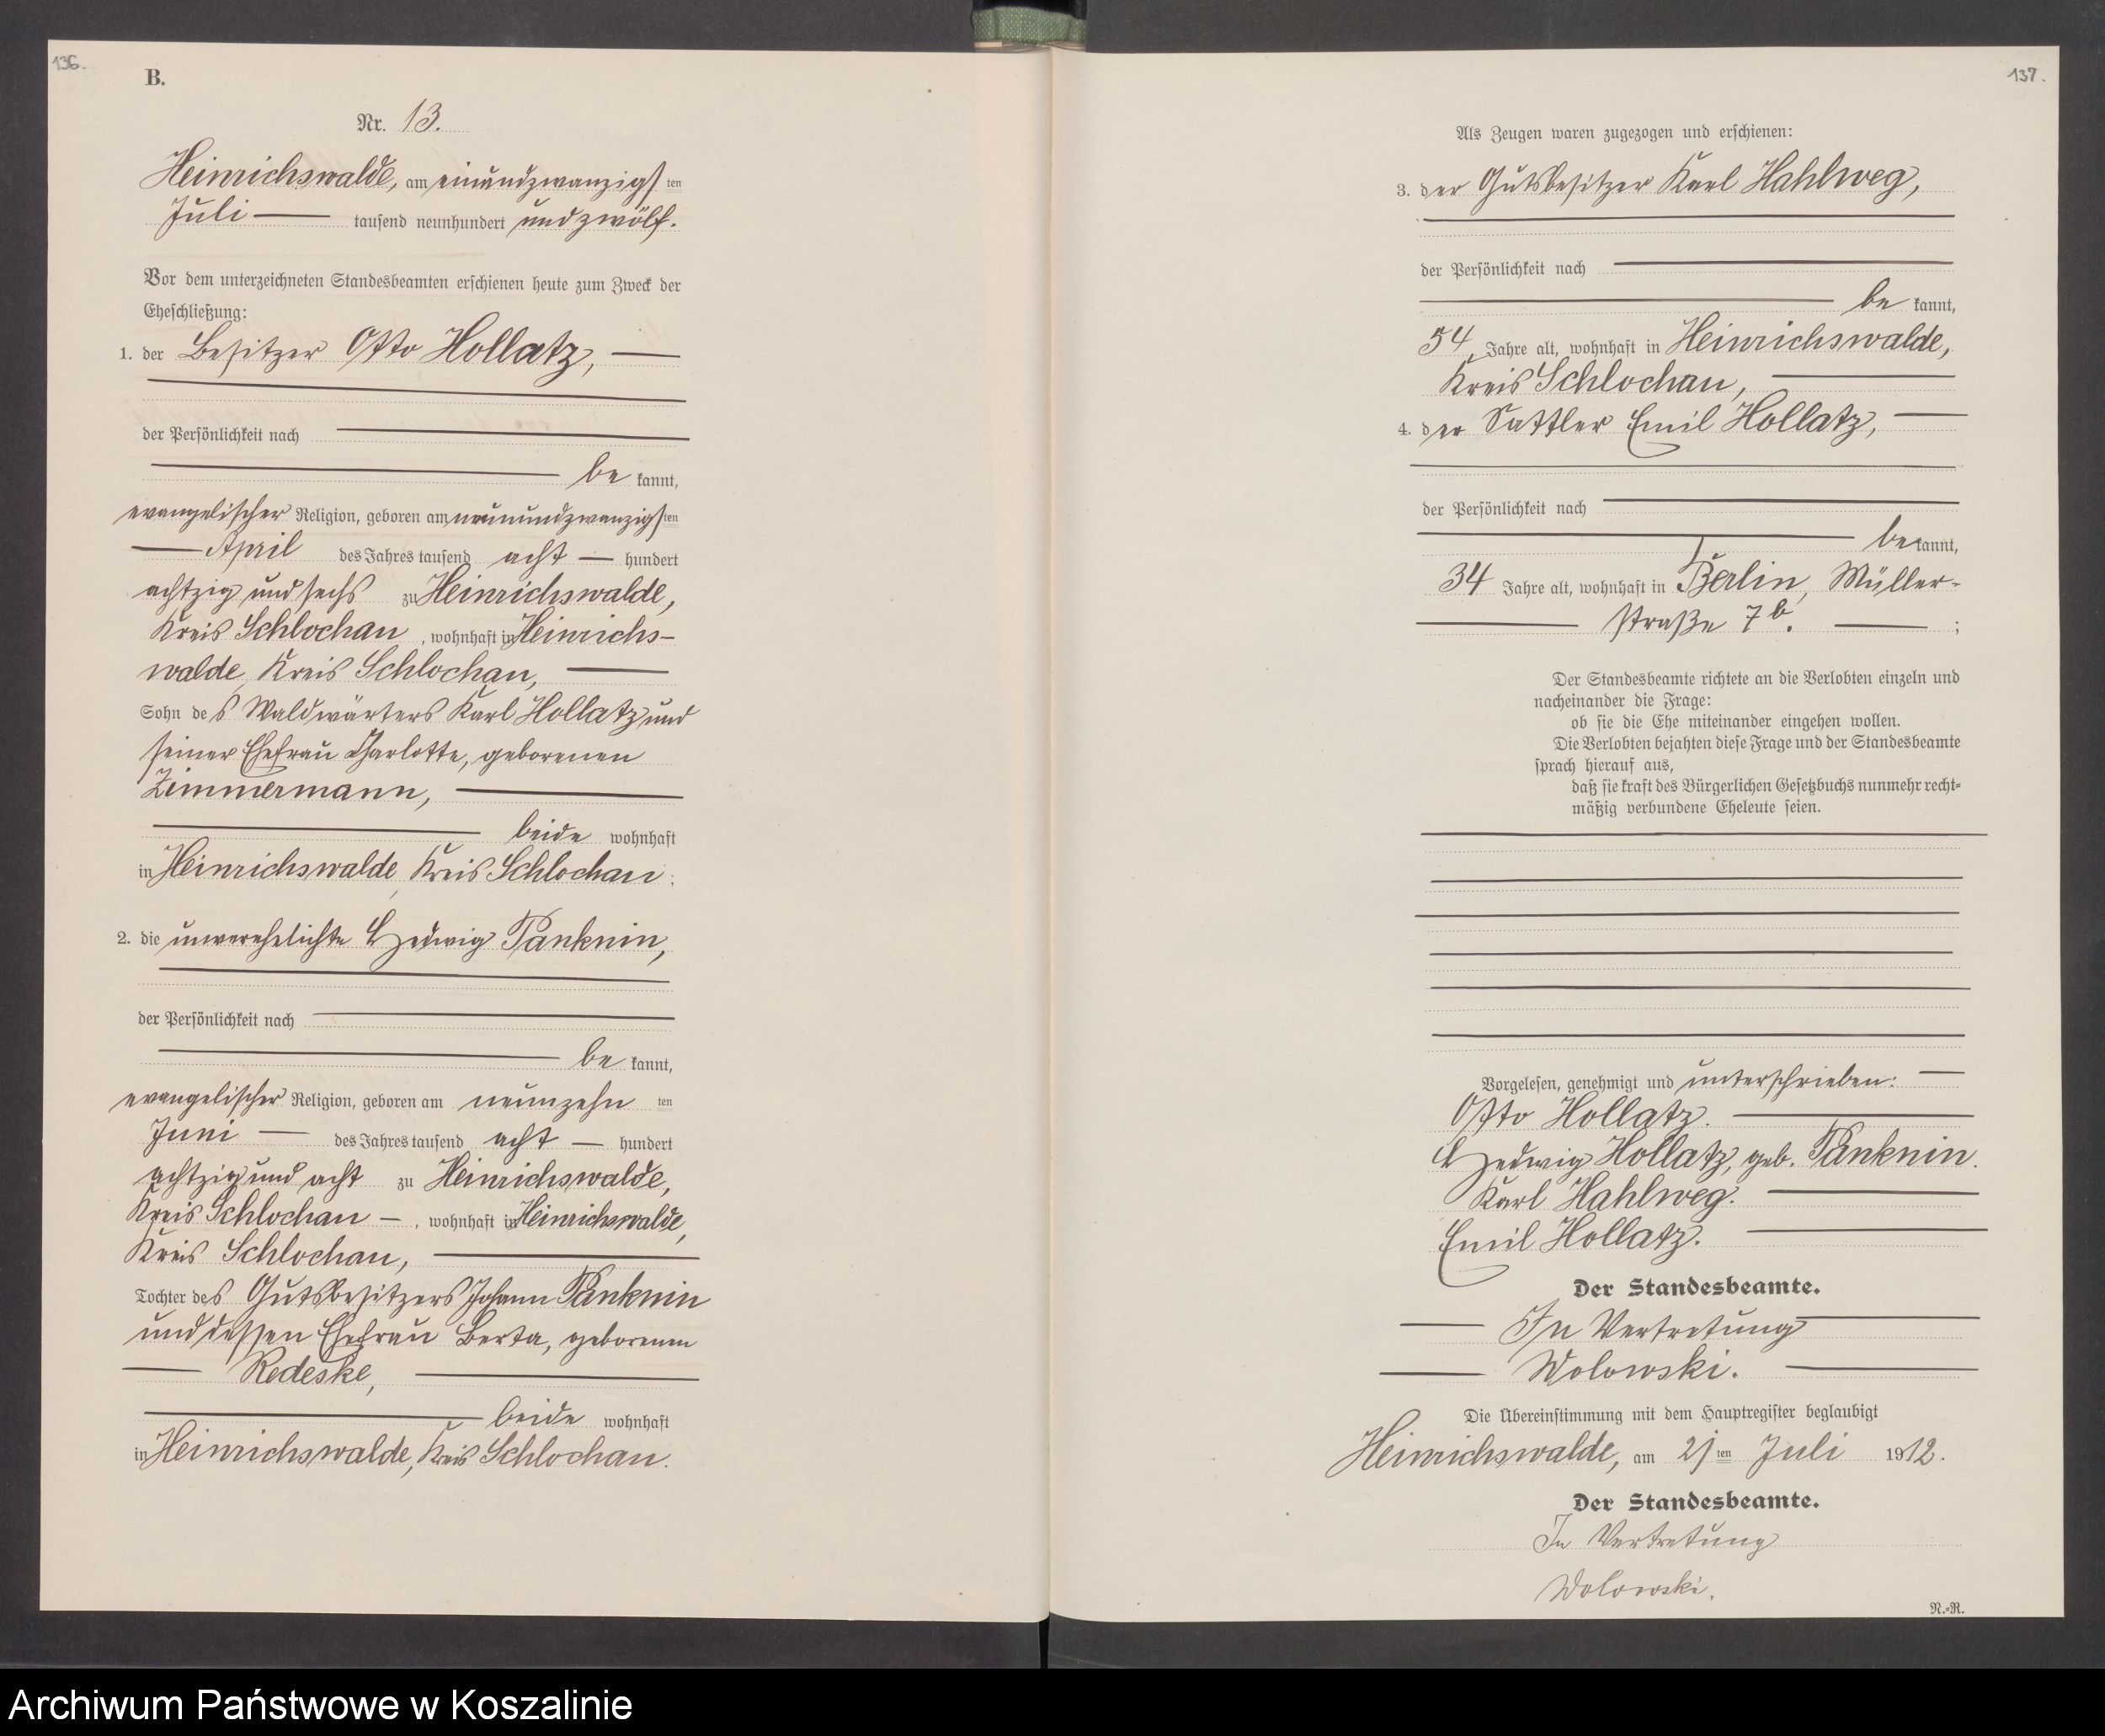 136.
B.
Nr. 13.
Heinrichswalde, am einundzwanzigsten
Juli tausend neunhundert und zwölf.
Vor dem unterzeichneten Standesbeamten erschienen heute zum Zweck der
Eheschließung:
1. der Besitzer Otto Hollatz,
der Persönlichkeit nach
be kannt,
evangelischer Religion, geboren am neunundzwanzigsten
April des Jahres tausend acht hundert
achtzig und sechs zu Heinrichswalde,
Kreis Schlochau, wohnhaft in Heinrichs-
walde, Kreis Schlochau,
Sohn des Waldwärters Karl Hollatz und
seiner Ehefrau Charlotte, geborenen
Zimmermann,
beide wohnhaft
in Heinrichswalde, Kreis Schlochau;
2. die unverehelichte Hedwig Panknin,
der Persönlichkeit nach
be kannt,
evangelischer Religion, geboren am neunzehn ten
Juni des Jahres tausend acht hundert
achtzig und acht zu Heinrichswalde,
Kreis Schlochau, wohnhaft in Heinrichswalde,
Kreis Schlochau,
Tochter des Gutsbesitzers Johann Panknin
und dessen Ehefrau Berta, geborenen
Redeske,
beide wohnhaft
in Heinrichswalde, Kreis Schlochau.
137.
Als Zeugen waren zugezogen und erschienen:
3. der Gutsbesitzer Karl Hahlweg,
der Persönlichkeit nach
be kannt,
54 Jahre alt, wohnhaft in Heinrichswalde,
Kreis Schlochau,
4. der Sattler Emil Hollatz,
der Persönlichkeit nach
be kannt,
34 Jahre alt, wohnhaft in Berlin, Müller-
straße 7b.;
Der Standesbeamte richtete an die Verlobten einzeln und
nacheinander die Frage:
ob sie die Ehe miteinander eingehen wollen.
Die Verlobten bejahten diese Frage und der Standesbeamte
sprach hierauf aus,
daß sie kraft des Bürgerlichen Gesetzbuchs nunmehr recht-
mäßig verbundene Eheleute seien.
Vorgelesen, genehmigt und unterschrieben:
Otto Hollatz.
Hedwig Hollatz, geb. Panknin.
Karl Hahlweg.
Emil Hollatz.
Der Standesbeamte.
In Vertretung
Wolowski.
Die Übereinstimmung mit dem Hauptregister beglaubigt
Heinrichswalde, am 21ten Juli 1912.
Der Standesbeamte.
In Vertretung
Wolowski.
N.-R.
Archiwum Państwowe w Koszalinie